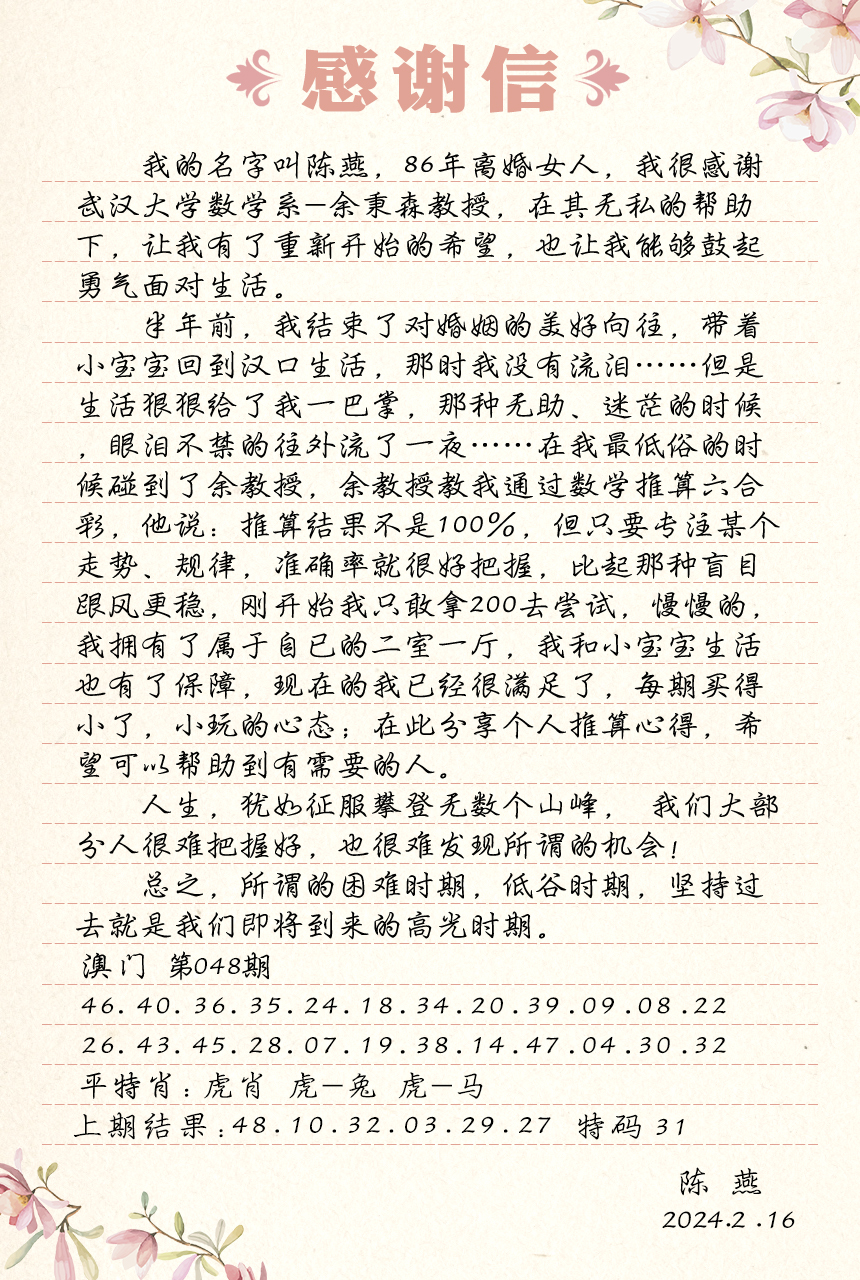 感谢信
我的名字叫陈燕，86年离婚女人，我很感谢
武汉大学数学系—余秉森教授，在其无私的帮助
下，让我有了重新开始的希望，也让我能够鼓起
勇气面对生活。
半年前，我结束了对婚姻的美好向往，带着
小宝宝回到汉口生活，那时我没有流泪……但是
生活狠狠给了我一巴掌，那种无助、迷茫的时候
，眼泪不禁的往外流了一夜……在我最低俗的时
候碰到了余教授，余教授教我通过数学推算六合
彩，他说：推算结果不是100%，但只要专注某个
走势、规律，准确率就很好把握，比起那种盲目
跟风更稳，刚开始我只敢拿200去尝试，慢慢的，
我拥有了属于自已的二室一厅，我和小宝宝生活
也有了保障，现在的我已经很满足了，每期买得
小了，小玩的心态；在此分享个人推算心得，希
望可以帮助到有需要的人。
人生，犹如征服攀登无数个山峰， 我们大部
分人很难把握好，也很难发现所谓的机会！
总之，所谓的困难时期，低谷时期，坚持过
去就是我们即将到来的高光时期。
澳门 第048期
46.40.36.35.24.18.34.20.39.09.08.22
26.43.45.28.07.19.38.14.47.04.30.32
平特肖：虎肖 虎—兔 虎—马
上期结果：48.10.32.03.29.27 特码 31
陈 燕
2024.2.16